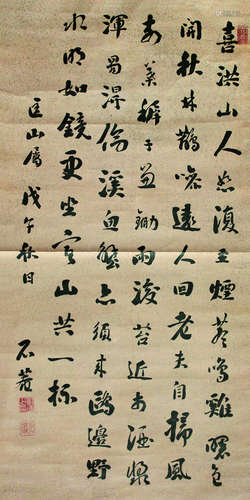 喜洪山人忽復至煙蒼鳴雞曙色
開秋林鵲喚遠人回老夫自掃風
前葉稚子兼鋤雨後苔近市酒漿
渾易得傍溪魚蟹亦須來鷗邊野
水明如鏡更坐空山共一杯
匡山屬 戊午秋日
石菴